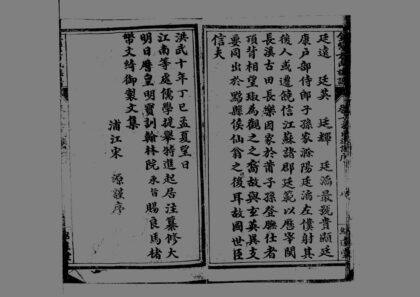 廷遠 廷英 廷輝 廷滔最號貴顯廷
康户部侍郎子孫家滁陽廷滔左僕射其
後人或遷饒信江蘇諸郡廷範以歷宰閩
長溪古田長樂因家於莆子孫登膴仕者
項背相望琡為觀之之裔故與玄英異支
要同出於黟縣侯仙翁之後耳故國世臣
信夫
洪武十年丁巳孟夏望日
江南等處儒學提舉特進起居注纂修大
明日曆皇明寶訓翰林院承旨賜良馬楮
幣文綺御製文集
浦江宋 濂謹序